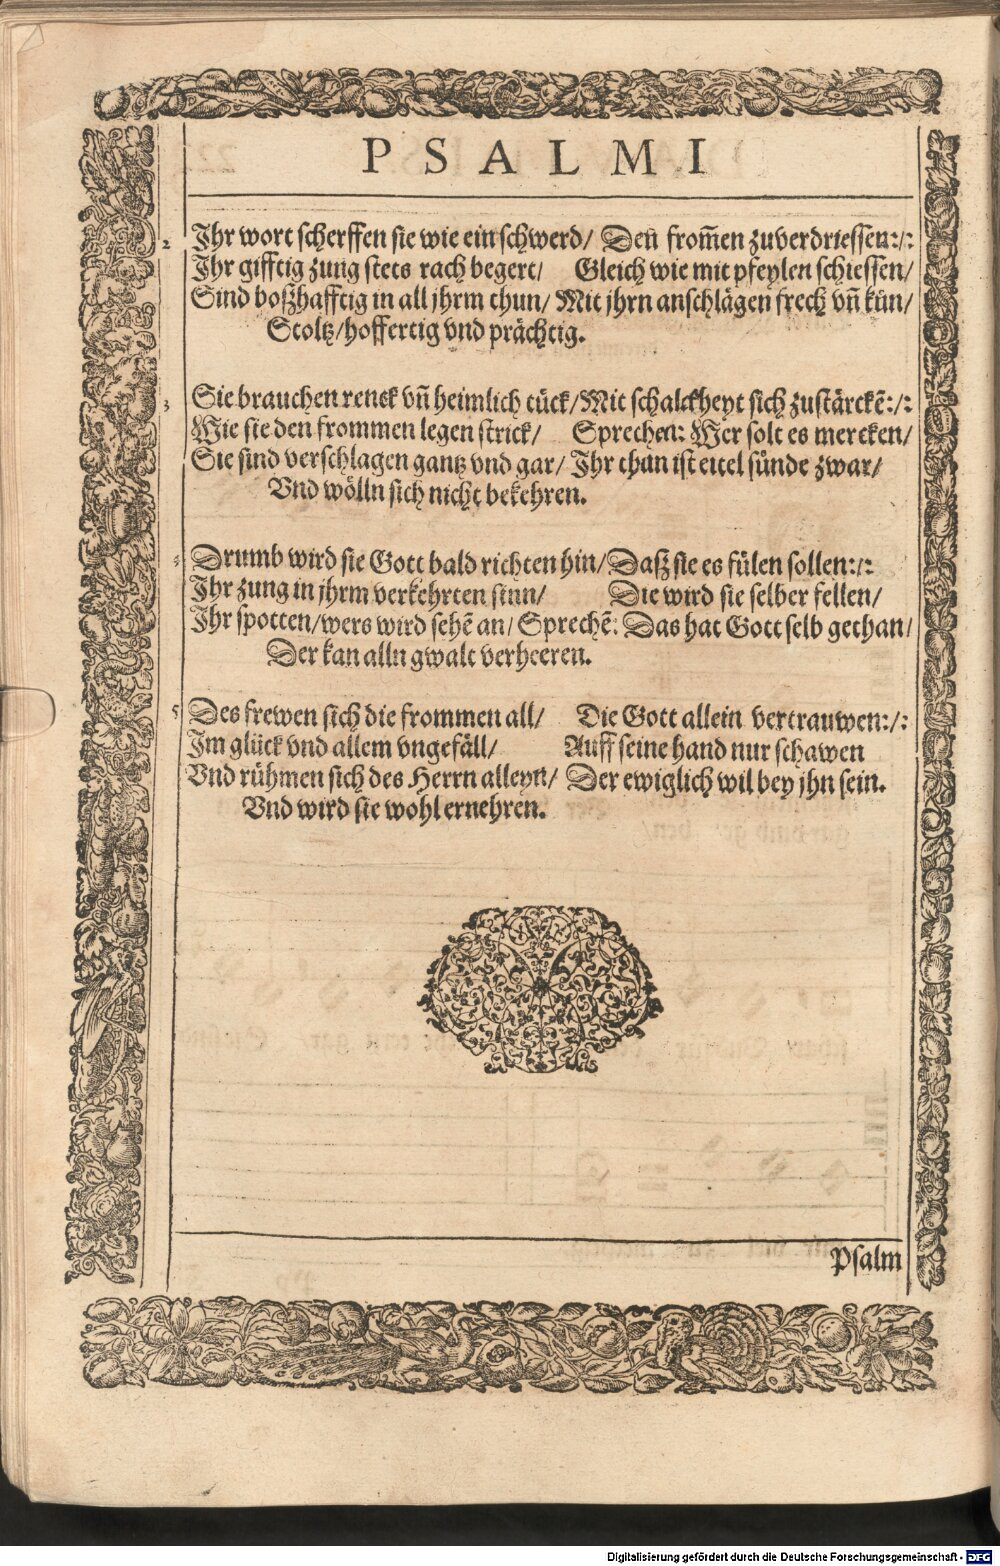 PSALMI
2 Ihr wort scherffen sie wie ein schwerd/ Den from̃en zuverdriessen:/:
Ihr gifftig zung stets rach begert/ Gleich wie mit pfeylen schiessen/
Sind boßhafftig in all jhrm thun/ Mit jhrn anschlägen frech vn̄ kün/
Stoltz/ hoffertig vnd prächtig.
3 Sie brauchen renck vn̄ heimlich tück/ Mit schalckheyt sich zustärckē:/:
Wie sie den frommen legen strick/ Sprechen: Wer solt es mercken/
Sie sind verschlagen gantz vnd gar/ Ihr than ist eitel sünde zwar/
Vnd wölln sich nicht bekehren.
Drumb wird sie Gott bald richten hin/ Daß sie es fülen sollen:/:
Ihr zung in jhrm verkehrten sinn/ Die wird sie selber fellen/
Ihr spotten/ wers wird sehē an/ Sprechē: Das hat Gott selb gethan/
Der kan alln gwalt verheeren.
5 Des frewen sich die frommen all/ Die Gott allein vertrauwen:/:
Im glück vnd allem vngefäll/ Auff seine hand nur schawen
Vnd rühmen sich des Herrn alleyn/ Der ewiglich wil bey jhn sein.
Vnd wird sie wohl ernehren.
Psalm
Digitalisierung gefördert durch die Deutsche Forschungsgemeinschaft - DFG